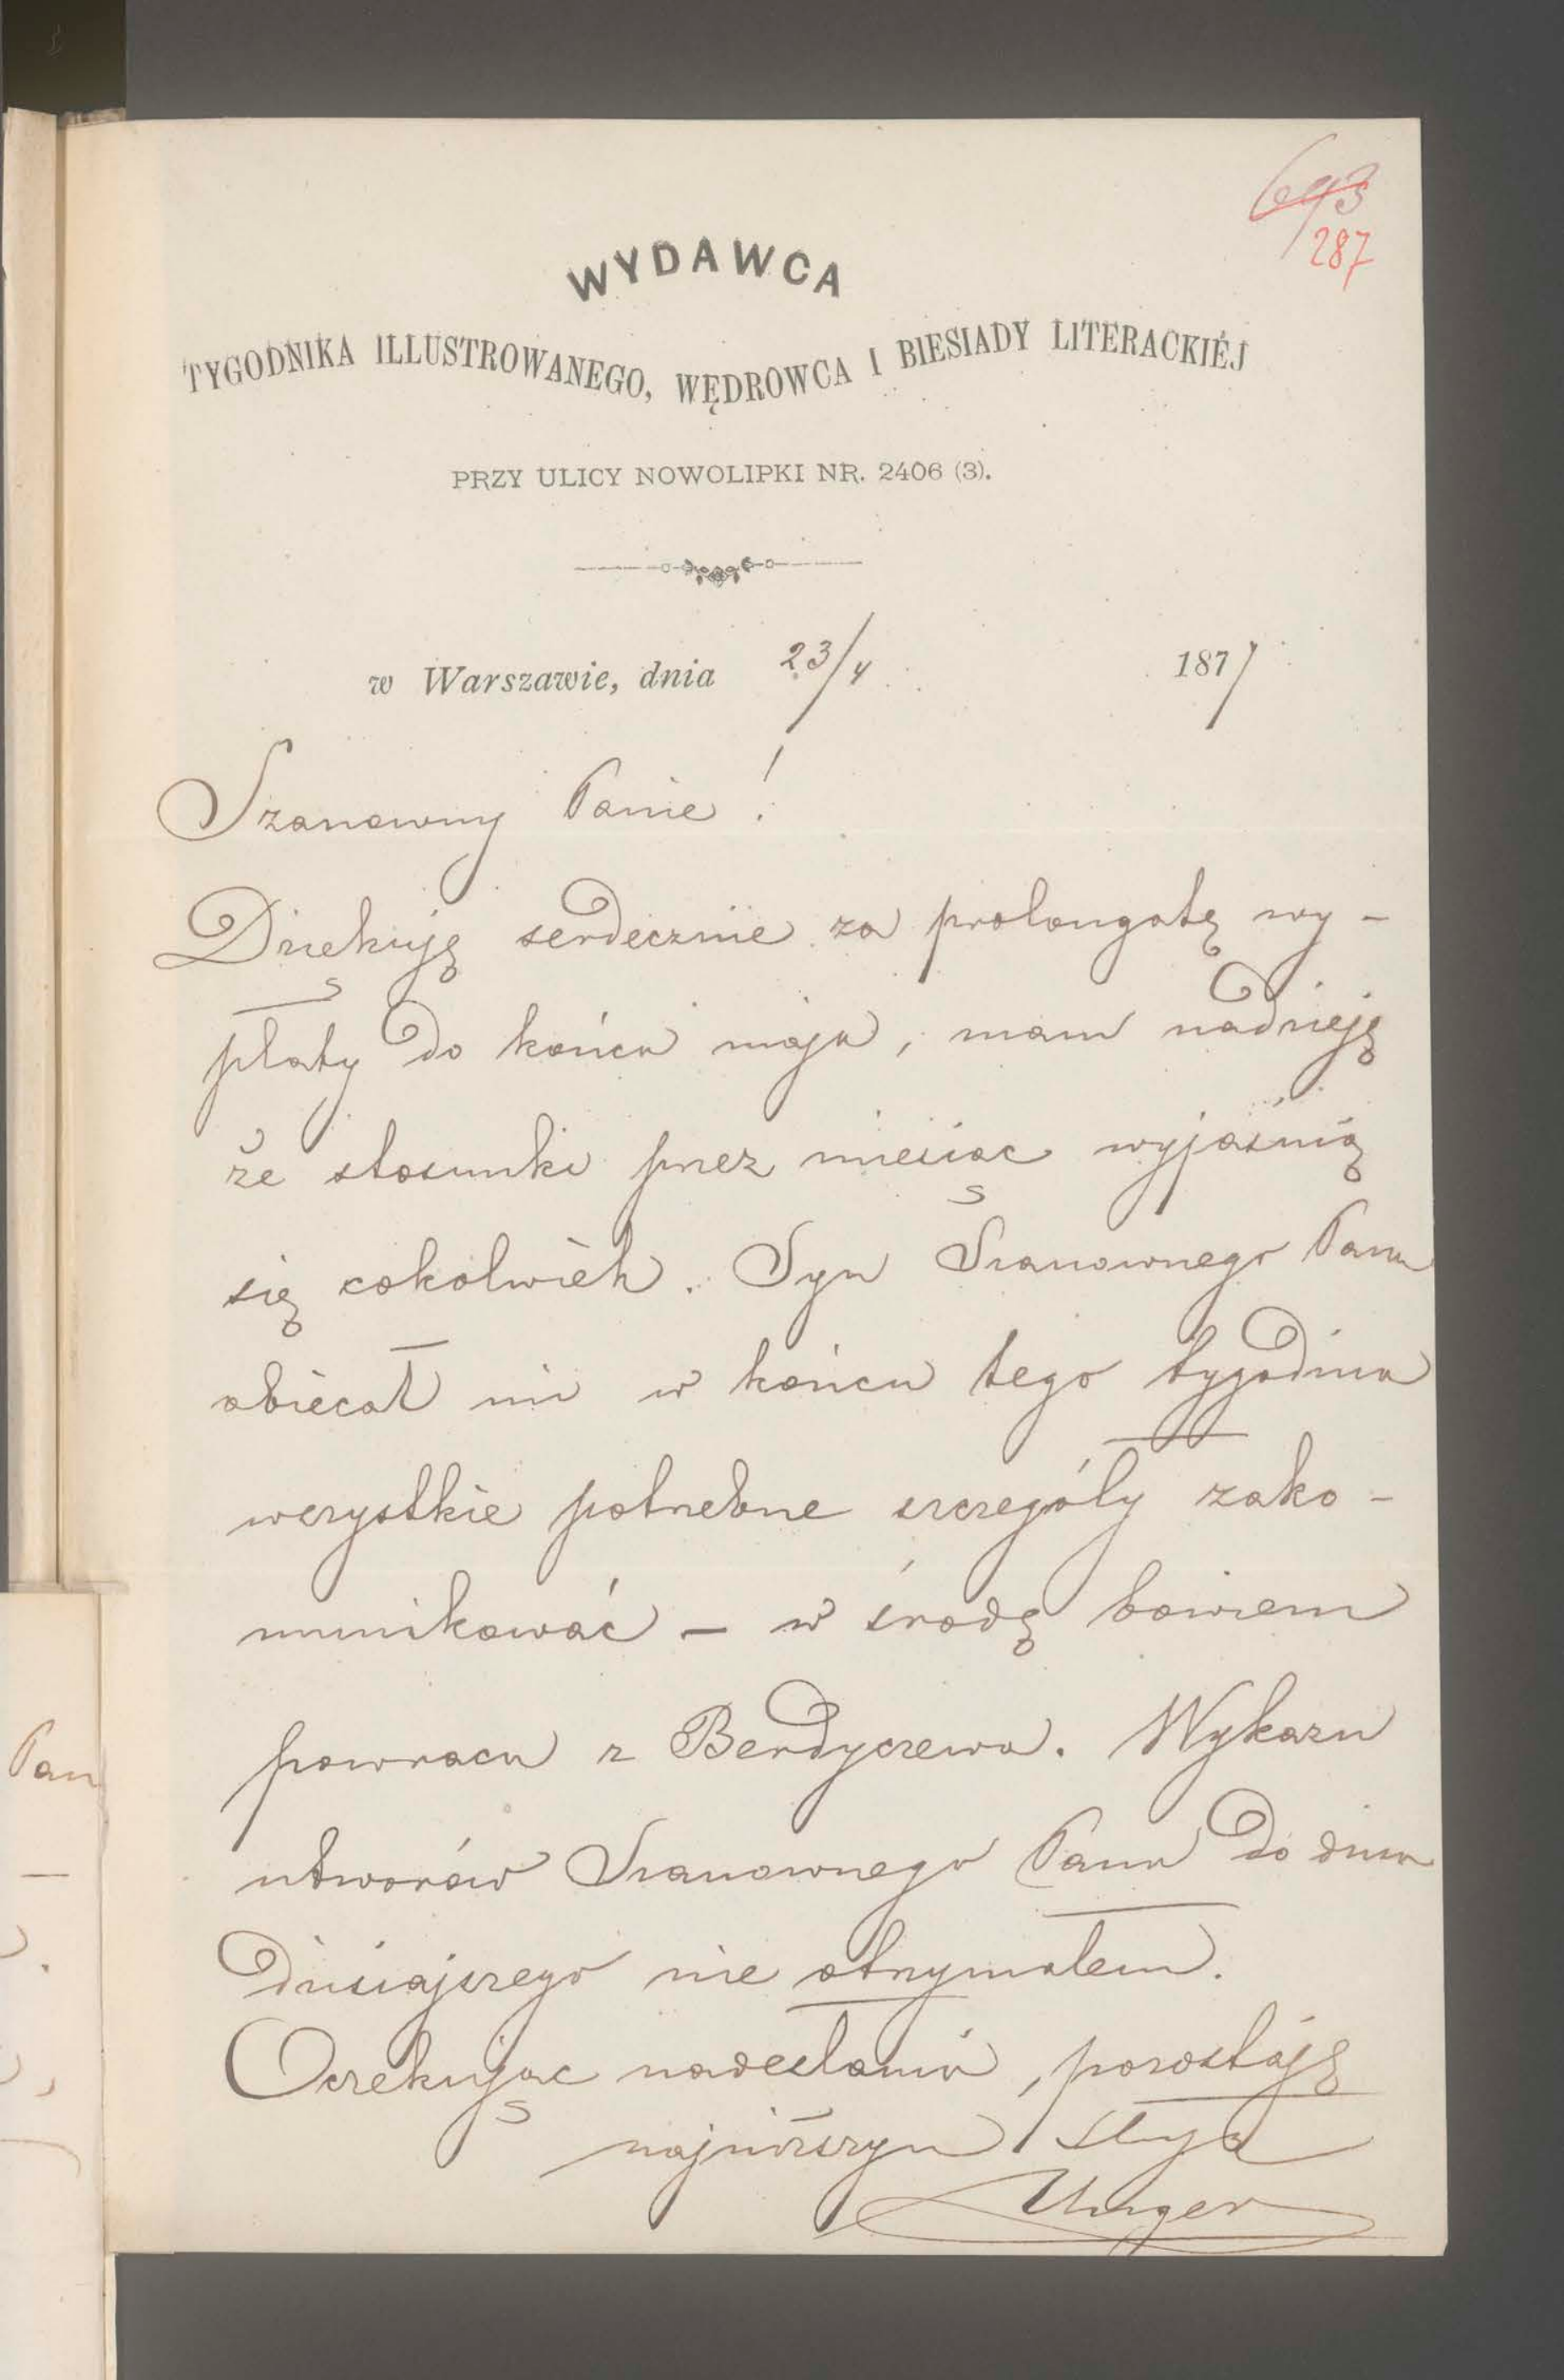 643
287
WYDAWCA
TYGODNIKA ILLUSTROWANEGO, WĘDROWCA I BIESIADY LITERACKIÉJ
PRZY ULICY NOWOLIPKI NR. 2406 (3).
w Warszawie, dnia 23/4 1877
Szanowny Panie!
Dziękuję serdecznie za prolongatę wy-
płaty do końca maja, mam nadzieję
że stosunki przez miesiąc wyjaśnią
się cokolwiek. Syn Szanownego Pana
obiecał mi w końcu tego tygodnia
wszystkie potrzebne szczegóły zako-
munikować – w środę bowiem
powraca z Berdyczewa. Wykazu
utworów Szanownego Pana do dnia
dzisiajszego nie otrzymałem.
Oczekując nadesłania, pozostaję
najniższym sługą
Unger
Pan